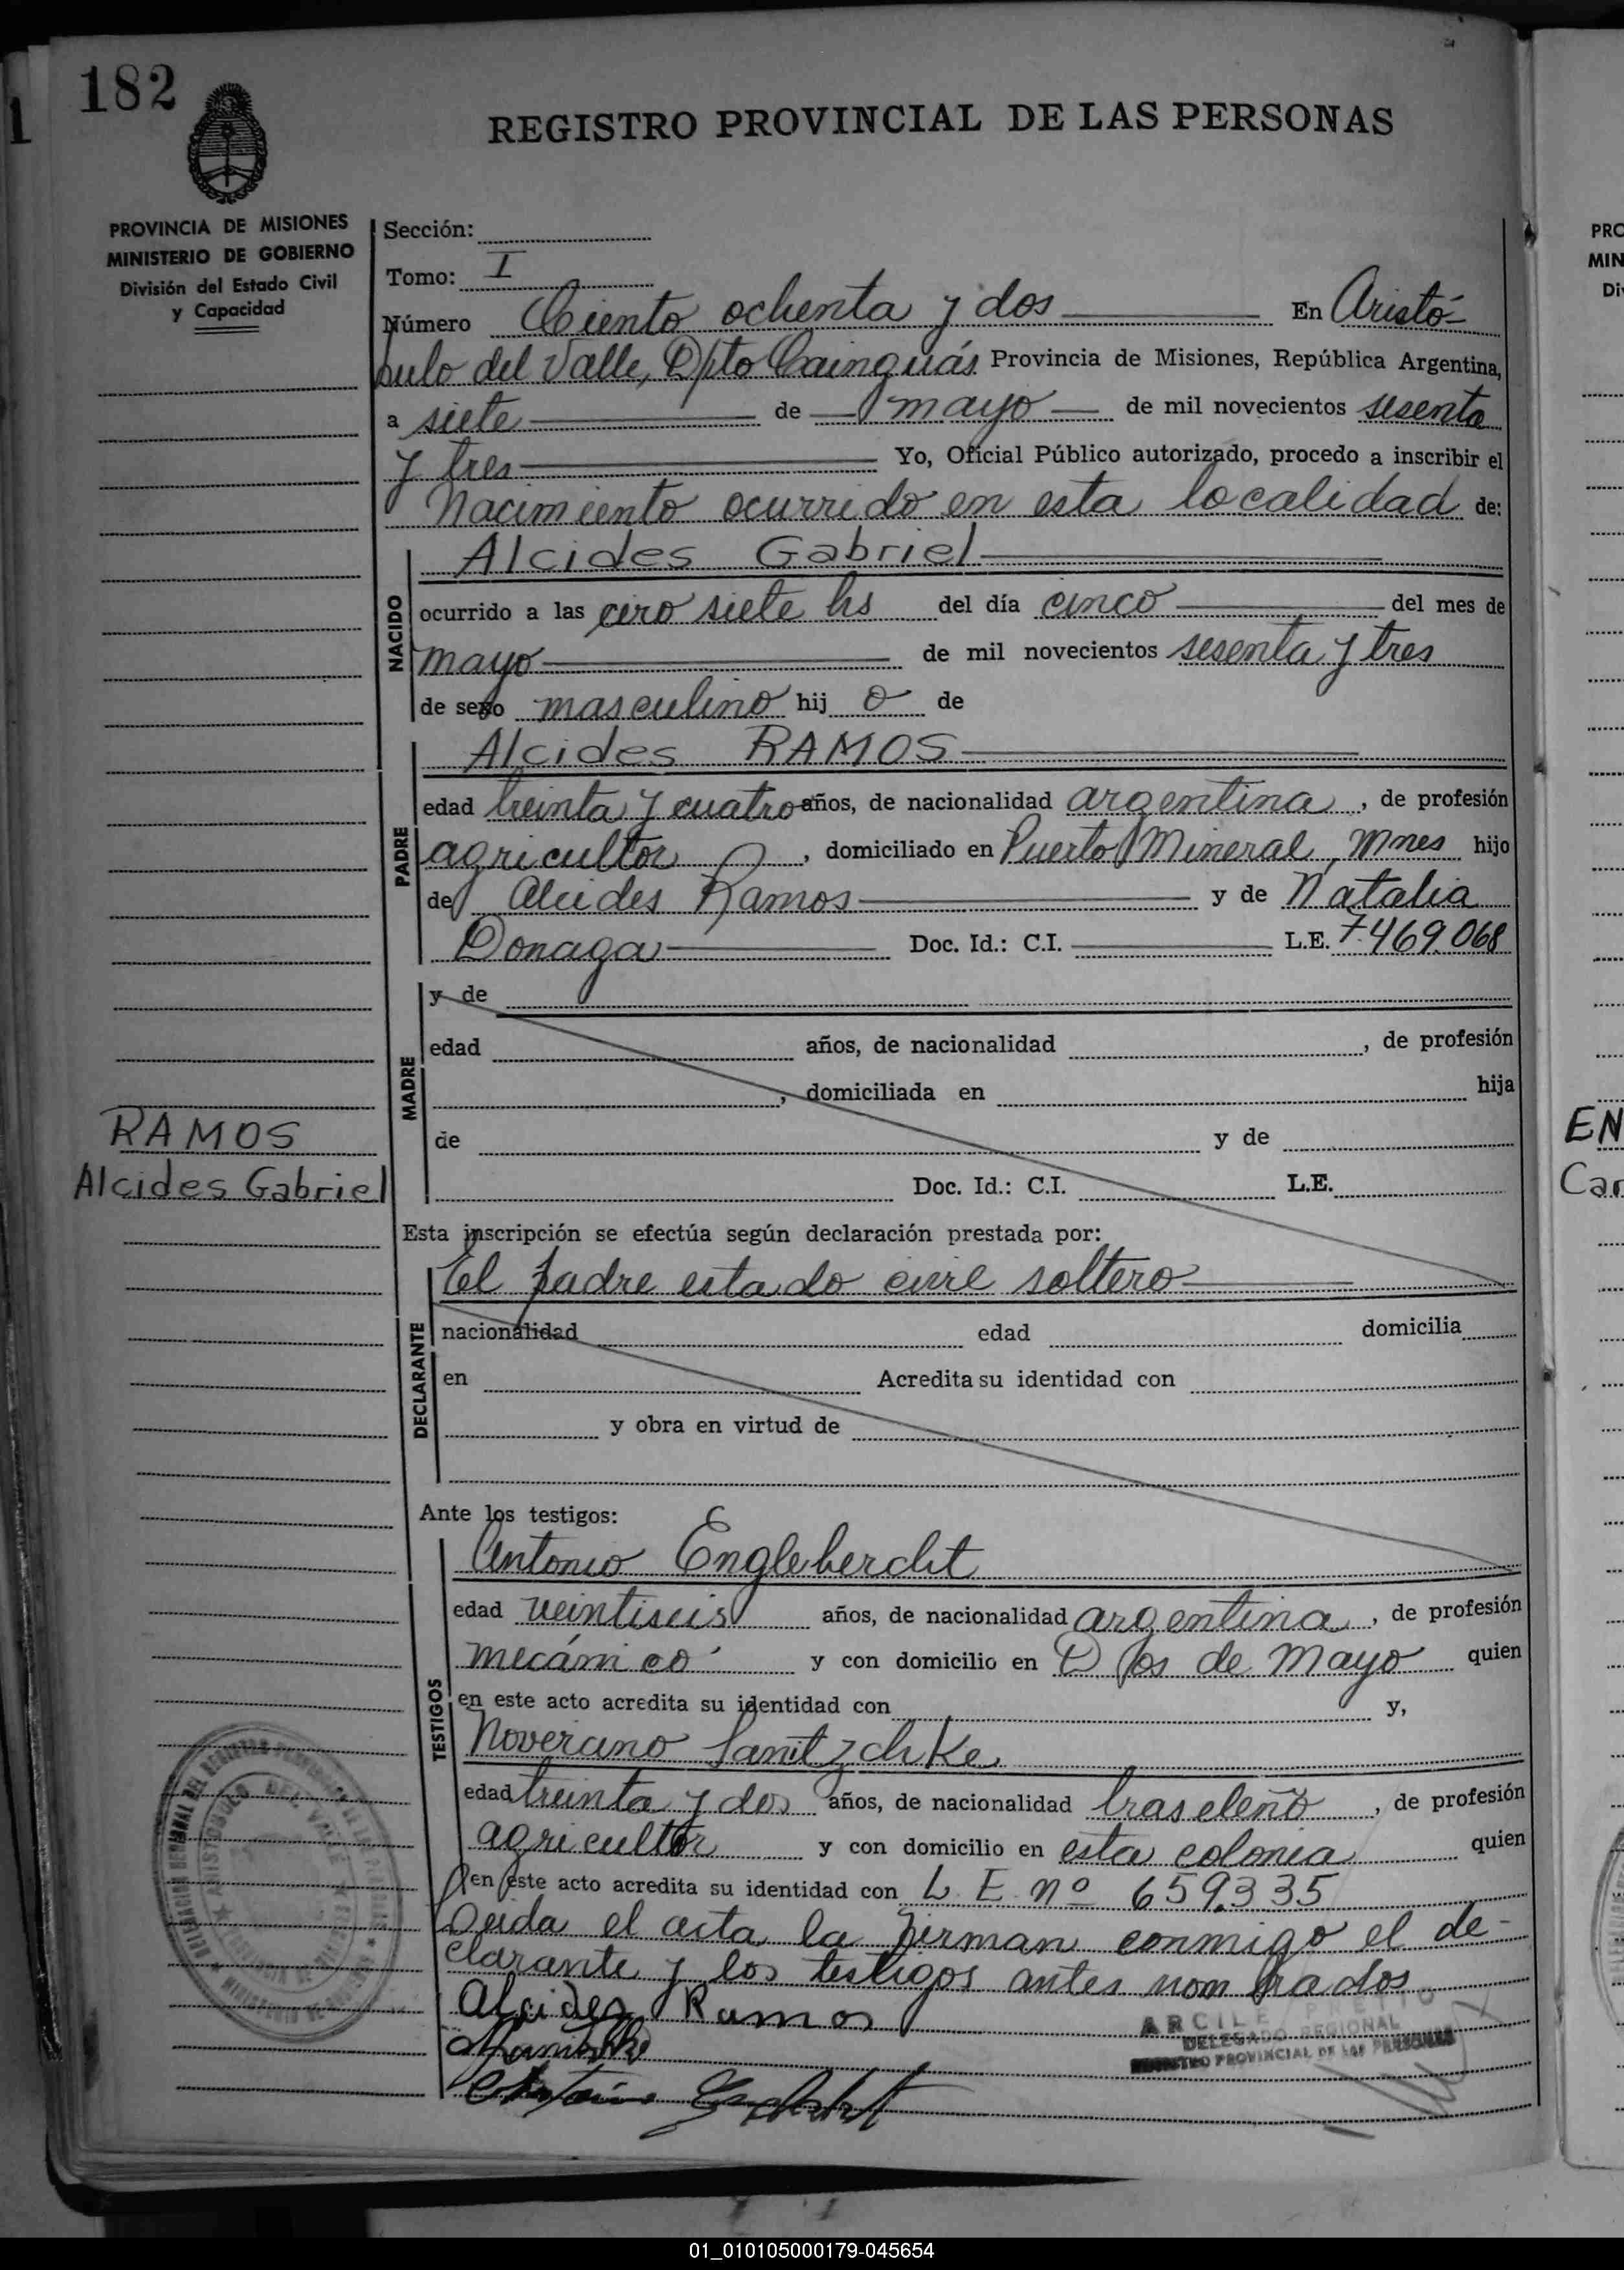 182
REGISTRO PROVINCIAL DE LAS PERSONAS
PROVINCIA DE MISIONES
MINISTERIO DE GOBIERNO
División del Estado Civil
y Capacidad
Sección:
Tomo: I
Número Ciento ochenta y dos En Aristó-
bulo del Valle, Dpto Cainguás Provincia de Misiones, República Argentina,
a siete de mayo de mil novecientos sesenta
y tres Yo, Oficial Público autorizado, procedo a inscribir el
Nacimiento ocurrido en esta localidad de:
NACIDO
Alcides Gabriel
ocurrido a las cero siete hs del día cinco del mes de
mayo de mil novecientos sesenta y tres
de sexo masculino hij o de
PADRE
Alcides RAMOS
edad treinta y cuatro años, de nacionalidad argentina, de profesión
agricultor, domiciliado en Puerto Mineral, Mnes hijo
de Alcides Ramos y de Natalia
Donaga Doc. Id.: C.I. L.E. 7.469.068
MADRE
y de
edad años, de nacionalidad , de profesión
, domiciliada en hija
de y de
Doc. Id.: C.I. L.E.
RAMOS
Alcides Gabriel
Esta inscripción se efectúa según declaración prestada por:
DECLARANTE
El padre estado civil soltero
nacionalidad edad domicilia
en Acredita su identidad con
y obra en virtud de
Ante los testigos:
TESTIGOS
Antonio Engleberdit
edad veintiseis años, de nacionalidad argentina, de profesión
mecánico y con domicilio en Dos de Mayo quien
en este acto acredita su identidad con y,
Noverano
edad treinta y dos años, de nacionalidad braseleño, de profesión
agricultor y con domicilio en esta colonia quien
en este acto acredita su identidad con L E nº 659.335
Leida el acta la firman conmigo el de-
clarante y los testigos antes nombrados
Alcides Ramos
ARCILE PRETTO
DELEGADO REGIONAL
REGISTRO PROVINCIAL DE LAS PERSONAS
PRO
MIN
Di
EN
Car
01_010105000179-045654